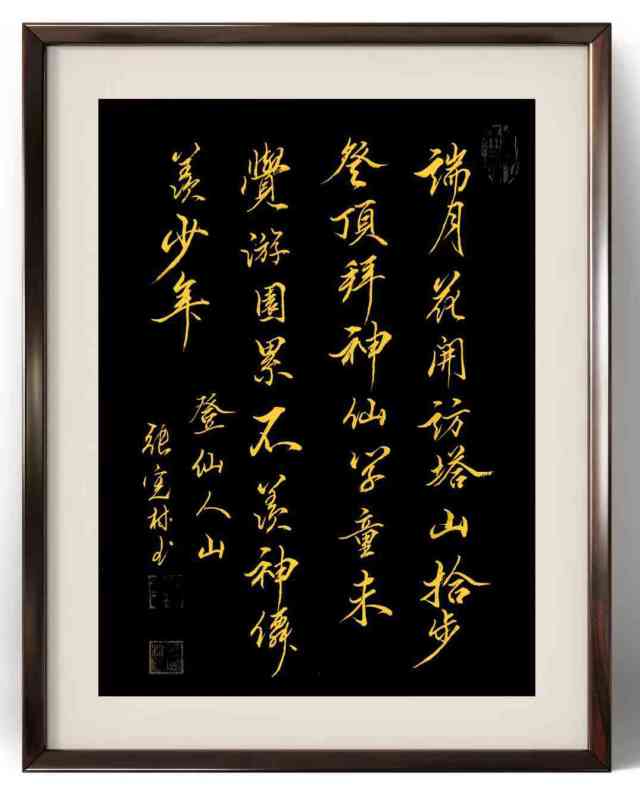 端月花開訪塔山拾步
登頂拜神仙学童未
覺游園累不羨神僊
羨少年
登仙人山
張寬林书